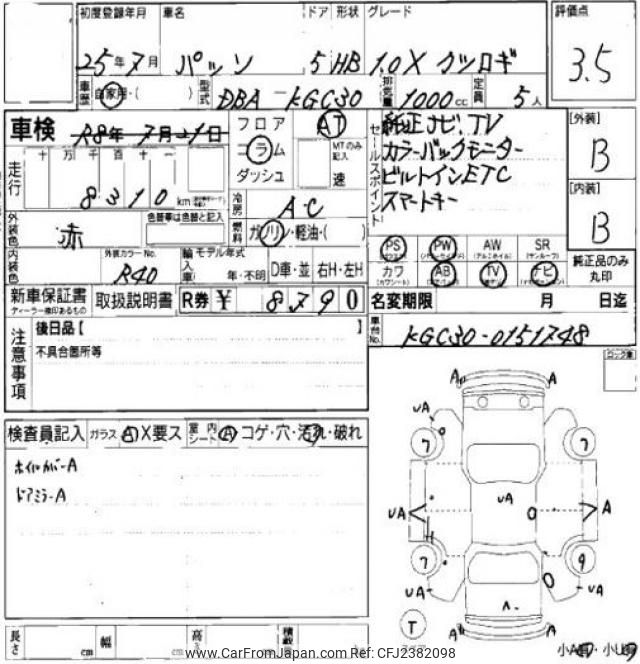 初度登録年月 車名 ドア 形状 グレード 評価点
25年7月 パッソ 5 HB 1.0X クツロギ 3.5
車歴 自家用・( ) 型式 DBA-KGC30 排気量 1000cc 定員 5人
車検 R8年7月21日 フロア AT
コラム MTのみ記入
ダッシュ 速
セールスポイント
純正ナビ.TV
カラーバックモニター
ビルトインETC
スマートキー
[外装]
B
[内装]
B
走行 十万千百十一
8310km
冷房 A・C
外装色 赤 色替車は色替と記入
燃料 ガソリン・軽油・( )
内装色 外装カラーNo. R40
輸入車 モデル年式 年・不明 D車・並 右H・左H
PS PW AW SR
カワ AB TV ナビ
純正品のみ丸印
新車保証書 取扱説明書 R券 ¥ 8790
ディーラー捺印あるもの
名変期限 月 日迄
注意事項
後日品【
不具合箇所等
車台No. KGC30-0151748
検査員記入 ガラス A X要ス 室内シート A コゲ・穴・汚れ・破れ
ホイルカバーA
ドアミラーA
A A
UA
7 7
UA
UA O A
H
7 9
UA O UA
T
A A
長さ cm 幅 cm 高さ 積載
www.CarFromJapan.com Ref: CFJ2382098